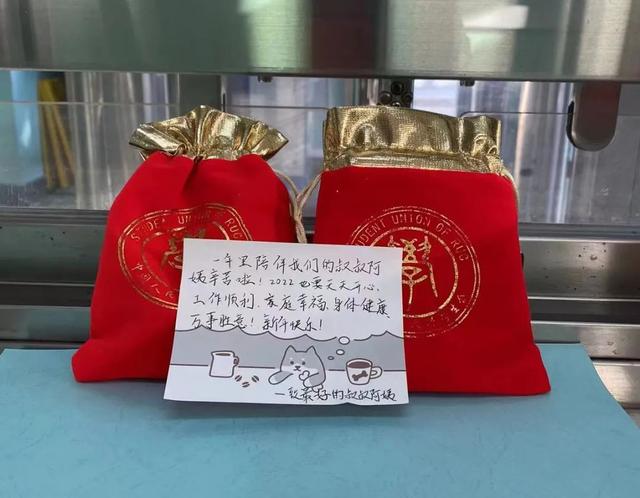 STUDENT UNION
RUC
中国人民
UDENT UNION OF RUC
一年里陪伴我们的叔叔阿
姨辛苦啦！2022也要天天开心、
工作顺利、家庭幸福、身体健康
万事胜意！新年快乐！
一致最好的叔叔阿姨